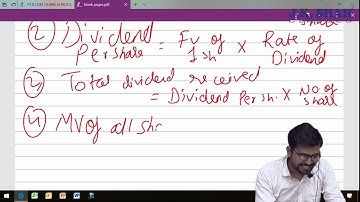 FYB.COM SHARE & MUTU
blank pages.pdf
share
② Dividend
Per share = Fv of 1 sh × Rate of Dividend
③ Total dividend received
= Dividend Per sh. × No of share
④ MV of all sh